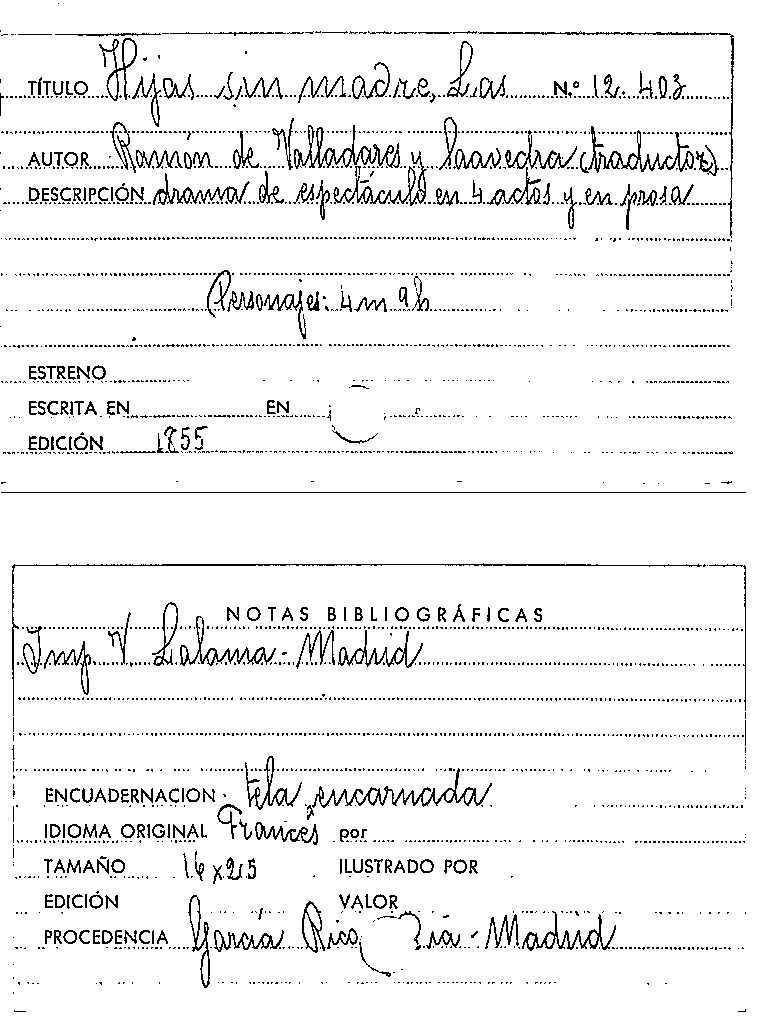 TÍTULO Hijas sin madre, Las N.º 12.403
AUTOR Ramón de Valladares y Saavedra (traductor)
DESCRIPCIÓN drama de espectáculo en 4 actos y en prosa
Personajes: 4m 9h
ESTRENO
ESCRITA EN EN
EDICIÓN 1855
NOTAS BIBLIOGRÁFICAS
Imp. V. Lalama - Madrid
ENCUADERNACION tela encarnada
IDIOMA ORIGINAL Francés por
TAMAÑO 16x25 ILUSTRADO POR
EDICIÓN VALOR
PROCEDENCIA García Rico, Madrid